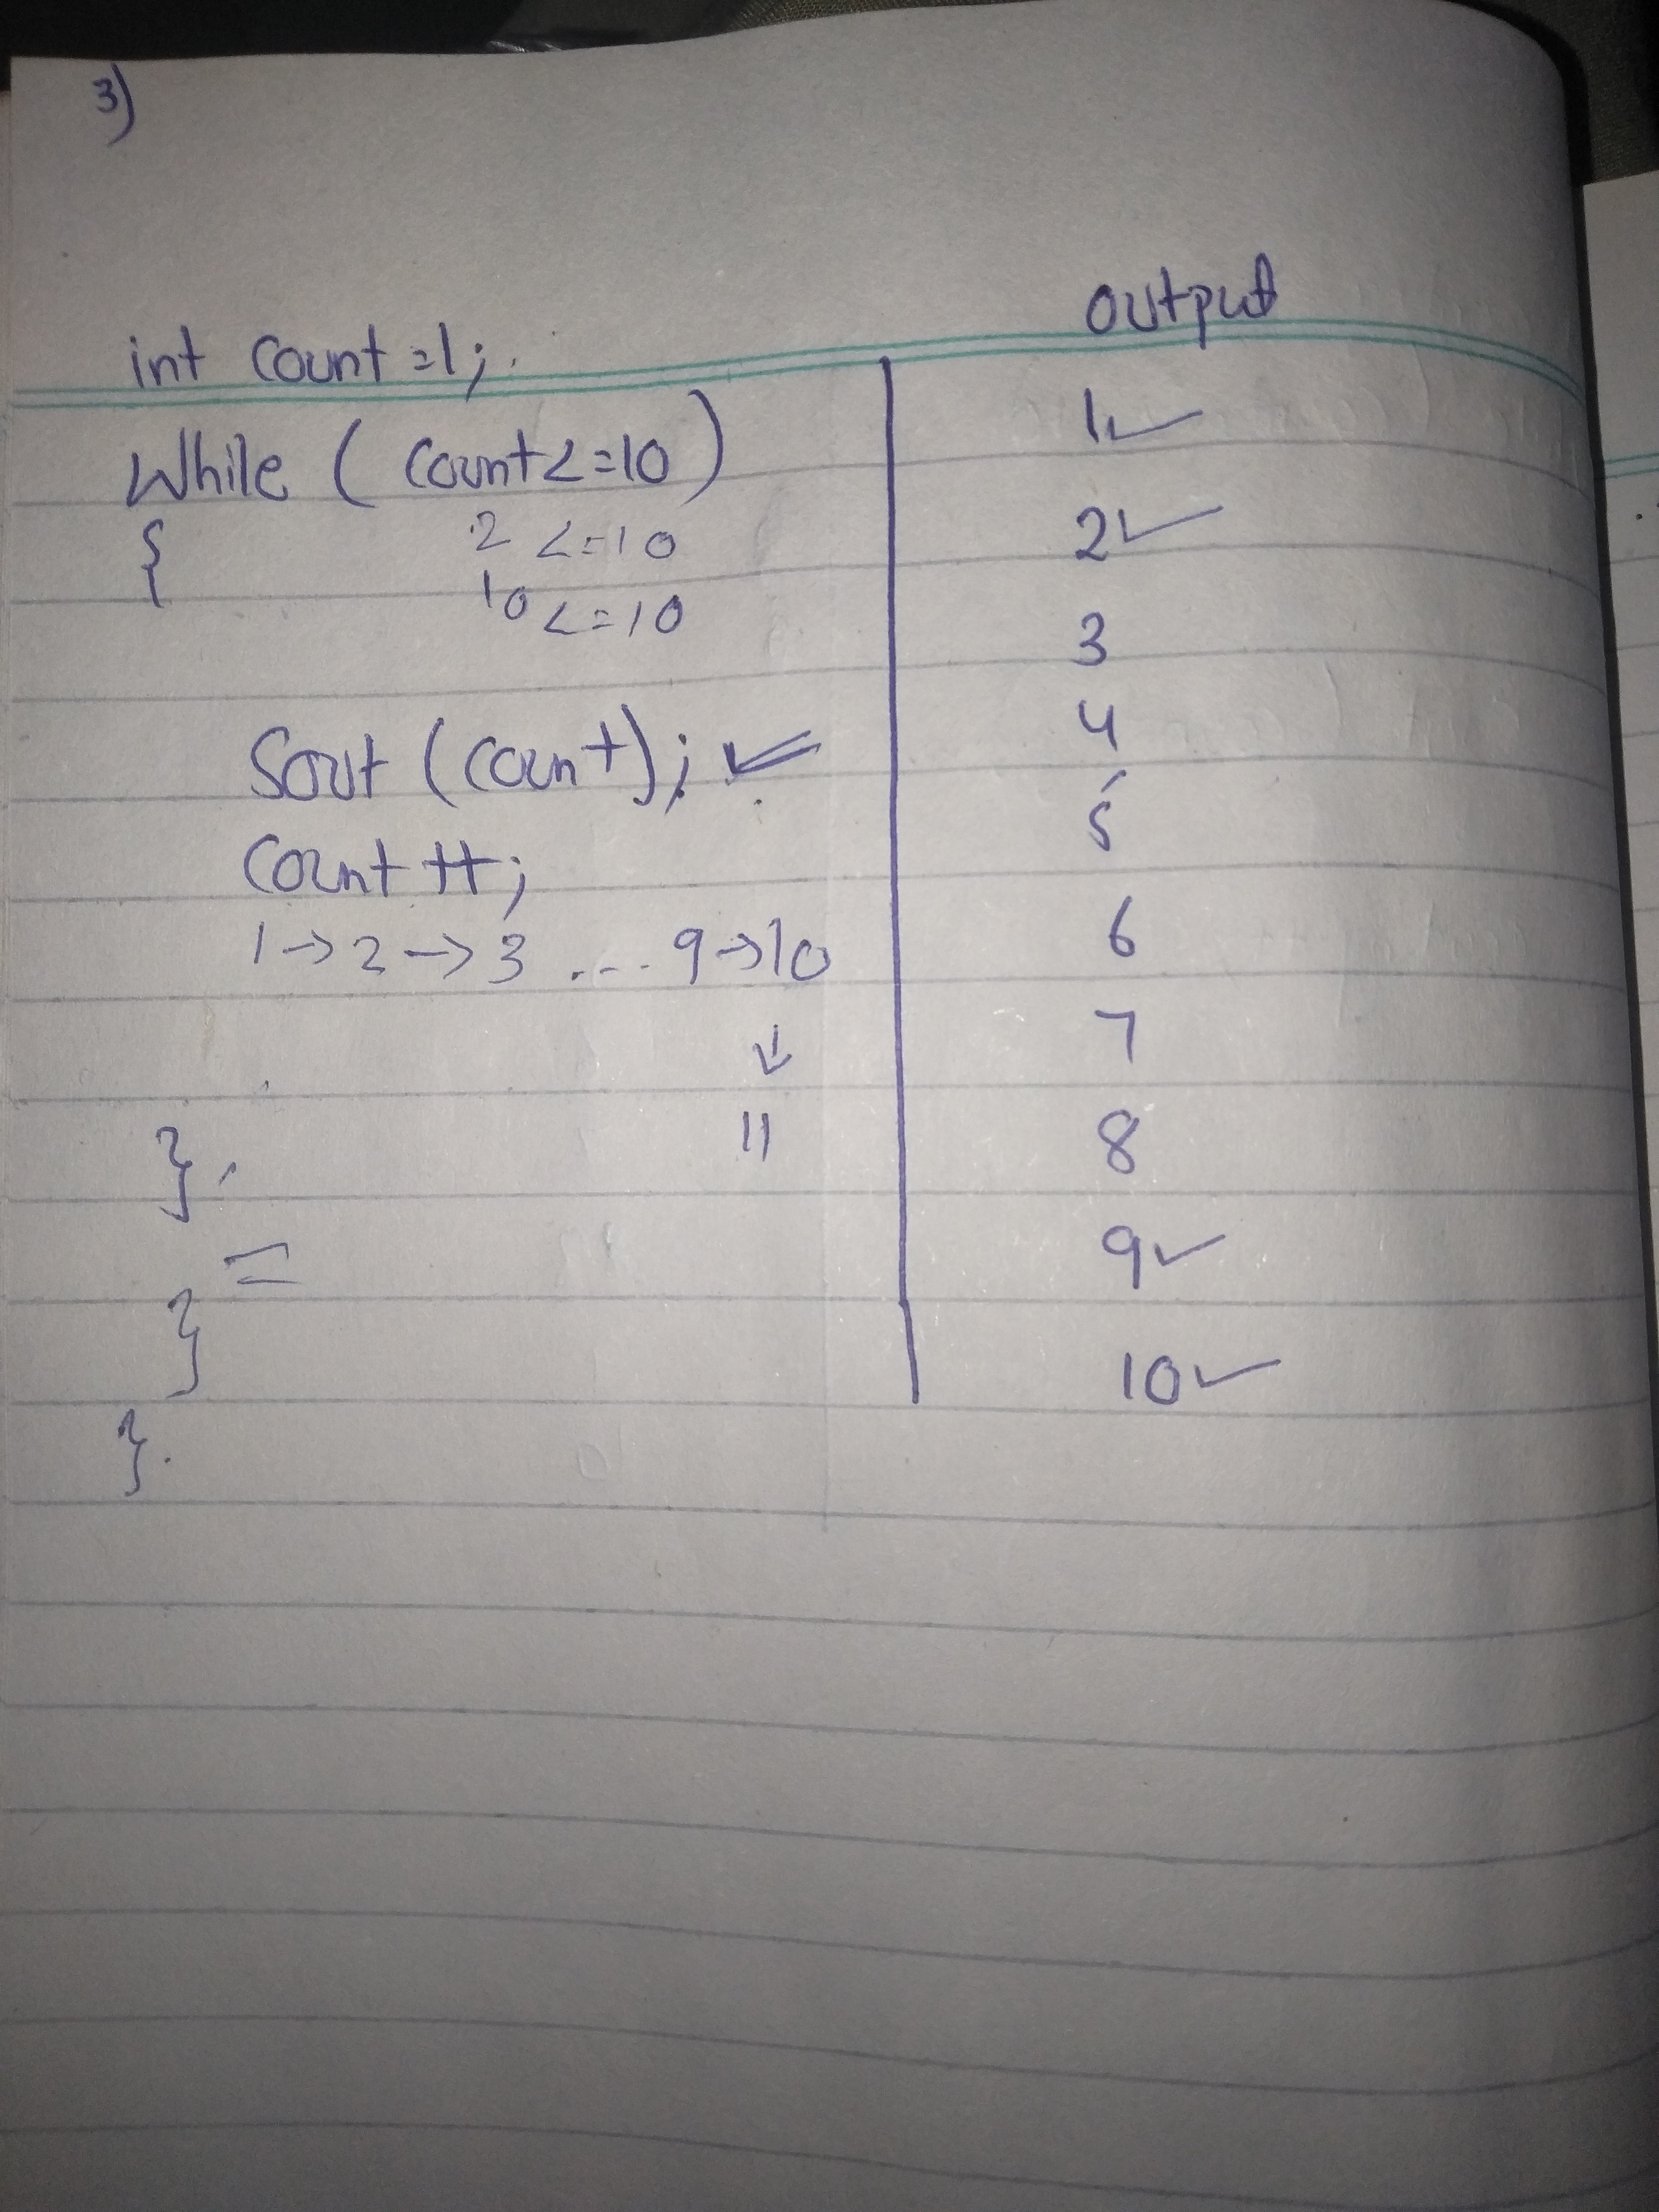 3)
int count=1;
While (count<=10)
{ 2 <=10
10 <=10
Sout (count);
Count ++;
1→2→3 .... 9→10
↓
11
}.
=
}
}.
output
1✓
2✓
3
4
5
6
7
8
9✓
10✓